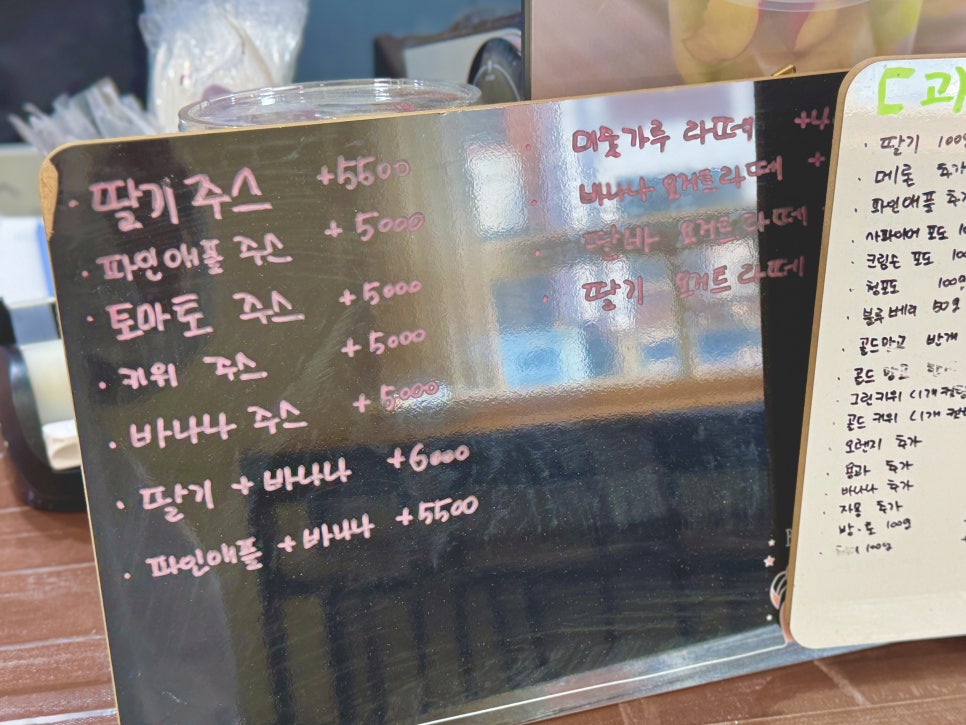 · 딸기 주스 +5500
· 파인애플 주스 +5000
· 토마토 주스 +5000
· 키위 주스 +5000
· 바나나 주스 +5000
· 딸기 + 바나나 +6000
· 파인애플 + 바나나 +5500
· 미숫가루 라떼
· 바나나 요거트라떼
· 딸바 요거트라떼
· 딸기 요거트 라떼
· 딸기
· 메론
· 파인애플
· 사파이어 포도
· 크림슨 포도
· 청포도
· 블루베리 50g
· 골드망고 반개
· 골드 망고
· 그린키위 (1개
· 골드 키위 (1개
· 오렌지 추가
· 용과 추가
· 바나나 추가
· 자몽 추가
· 방·토 100g
· 100g